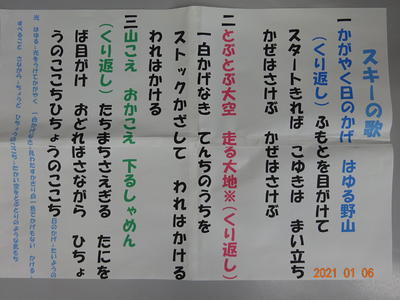 スキーの歌
一かがやく日のかげ はゆる野山
(くり返し)ふもとを目がけて
スタートきれば こゆきは まい立ち
かぜはさけぶ かぜはさけぶ
二とぶとぶ大空 走る大地※(くり返し)
一白かげなき てんちのうちを
ストックかざして われはかける
われはかける
三山こえ おかこえ 下るしゃめん
(くり返し)たちまちさえぎる たにを
ば目がけ おどればさながら ひちょ
うのここちひちょうのここち
2021 01 06